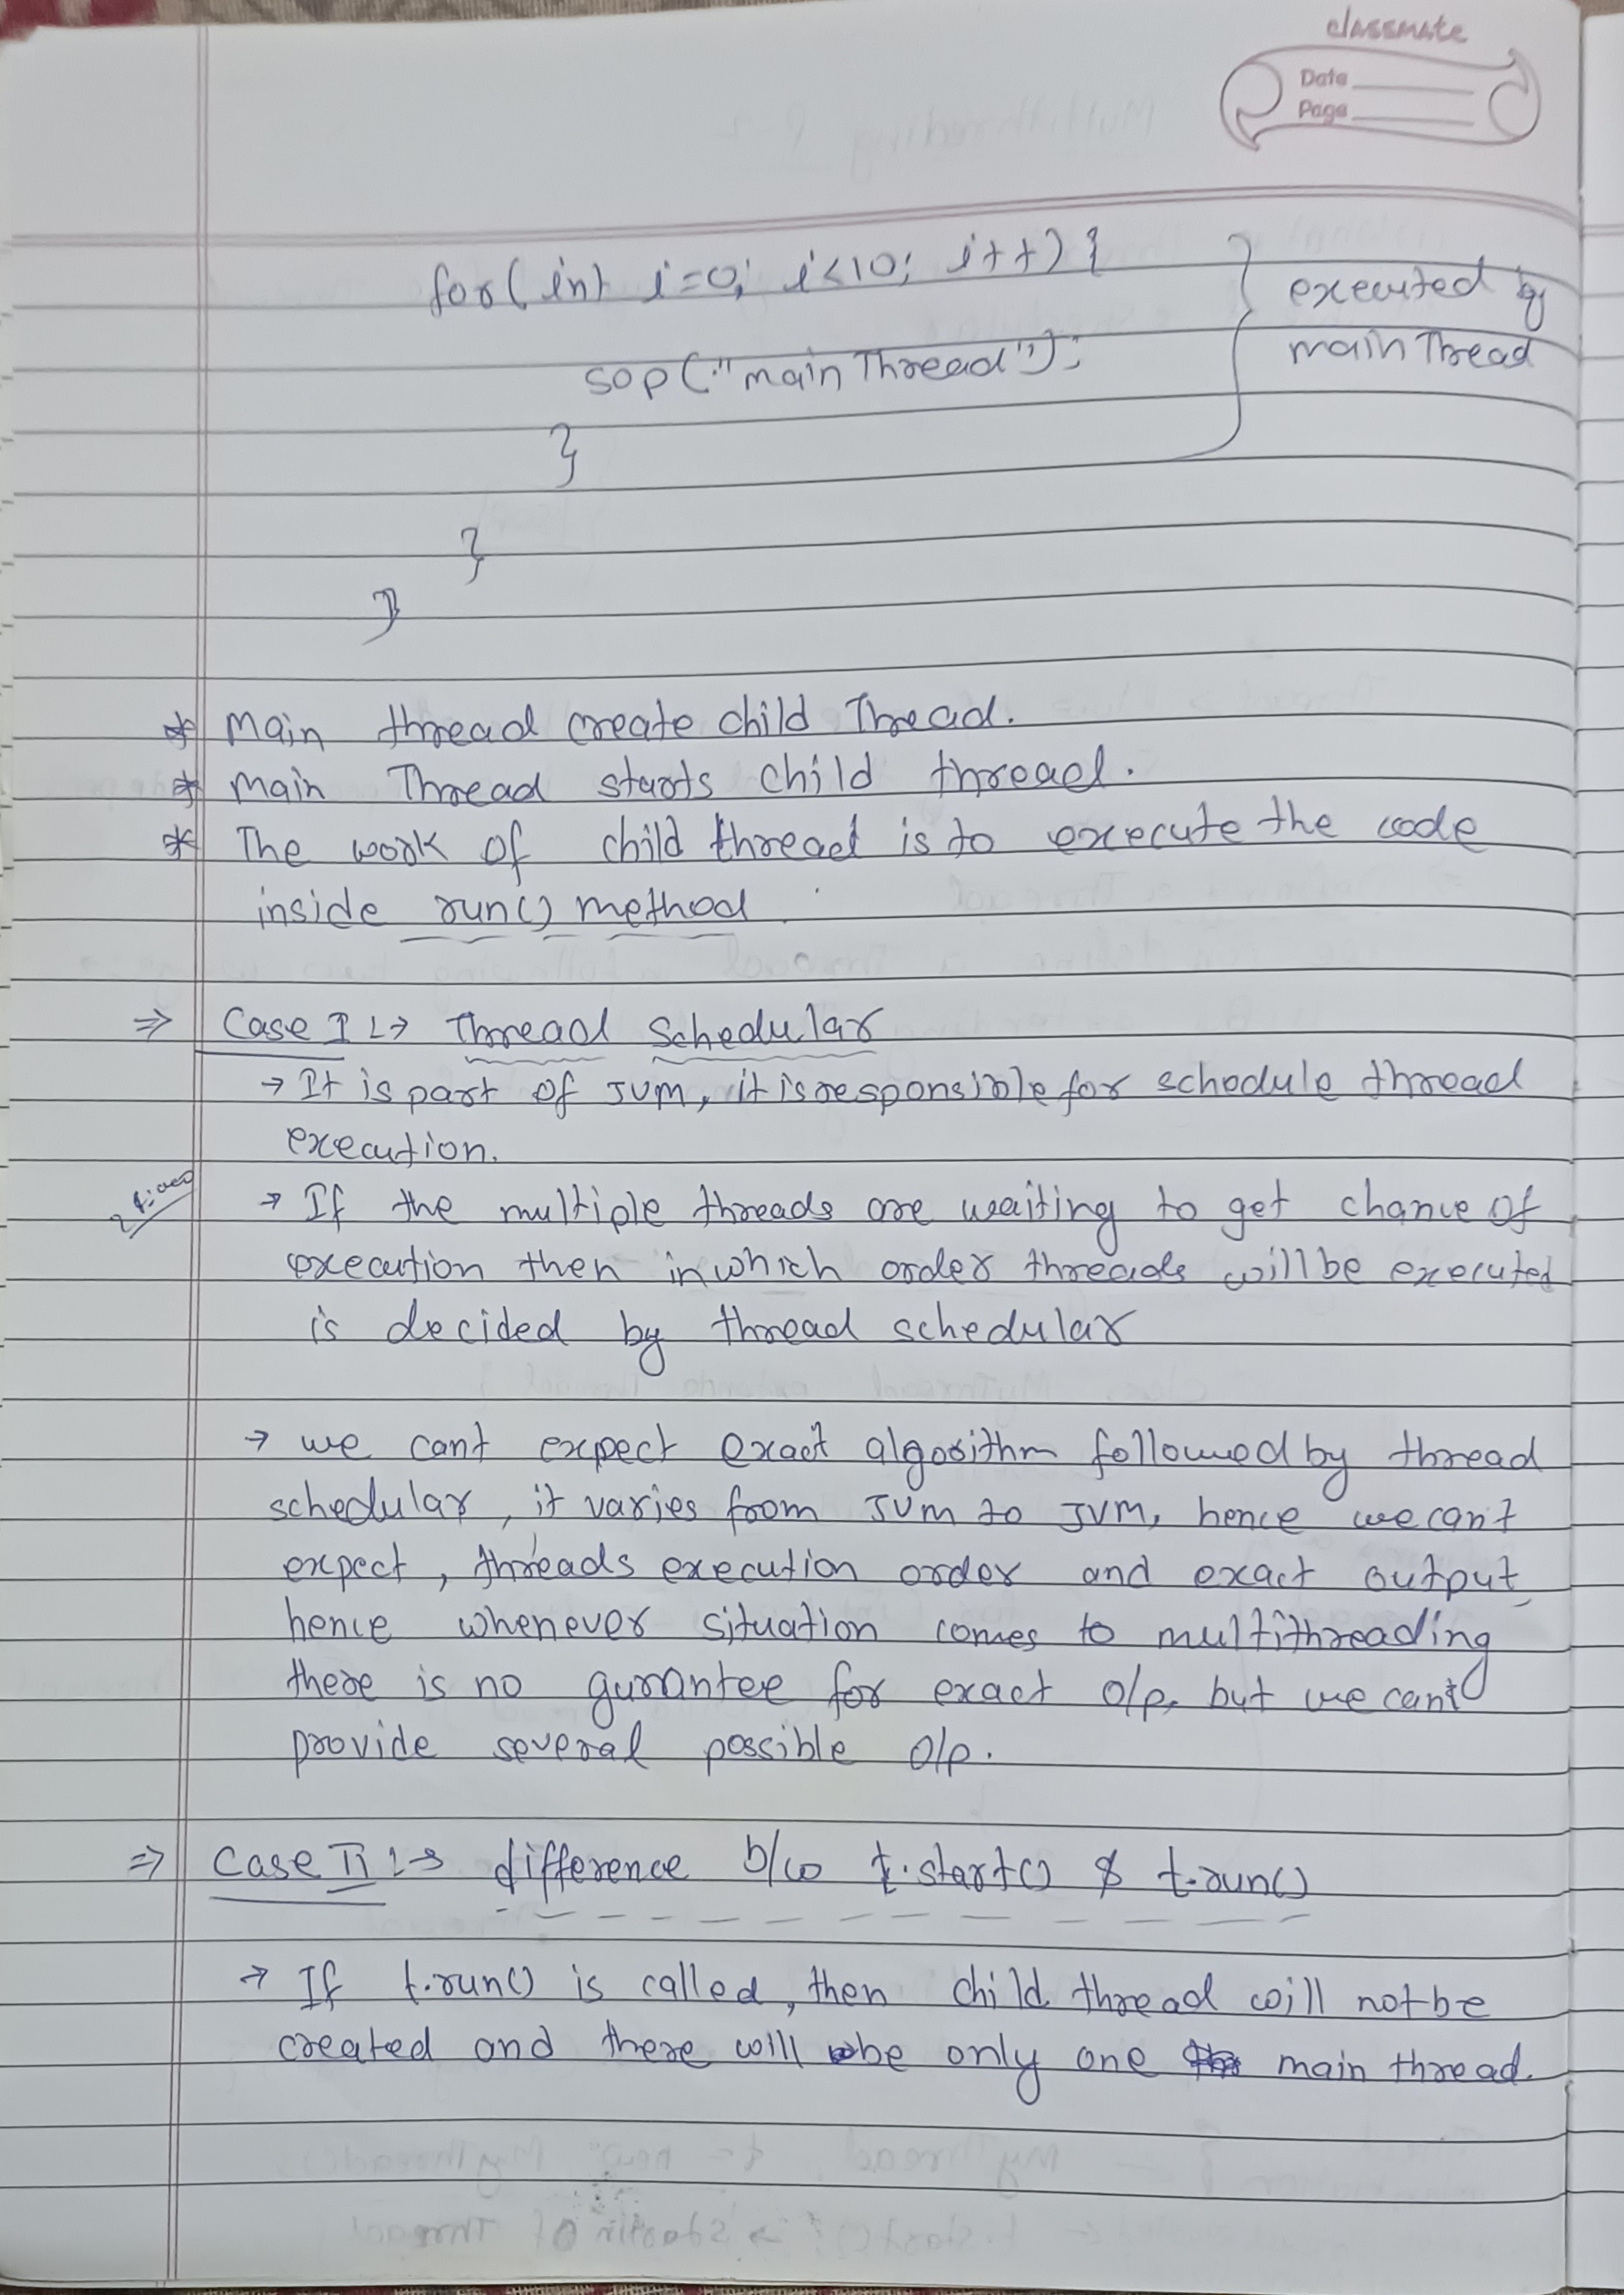 classmate
Date
Page
for( int i=0; i<10; i++) {
executed by
sop("main Thread");
main Thread
}
}
}
* Main thread create child Thread.
* Main Thread starts child thread.
* The work of child thread is to execute the code
inside run() method.
⇒ Case I :→ Thread Schedular
→ It is part of JVM, it is responsible for schedule thread
execution.
→ If the multiple threads are waiting to get chance of
execution then in which order threads will be executed
is decided by thread schedular
→ we cant expect exact algorithm followed by thread
schedular, it varies from JVM to JVM, hence we can't
expect, threads execution order and exact output
hence whenever situation comes to multithreading
there is no gurantee for exact o/p, but we cant
provide several possible o/p.
⇒ Case II :→ difference b/w t.start() & t.run()
→ If t.run() is called, then child thread will not be
created and there will be only one main thread.